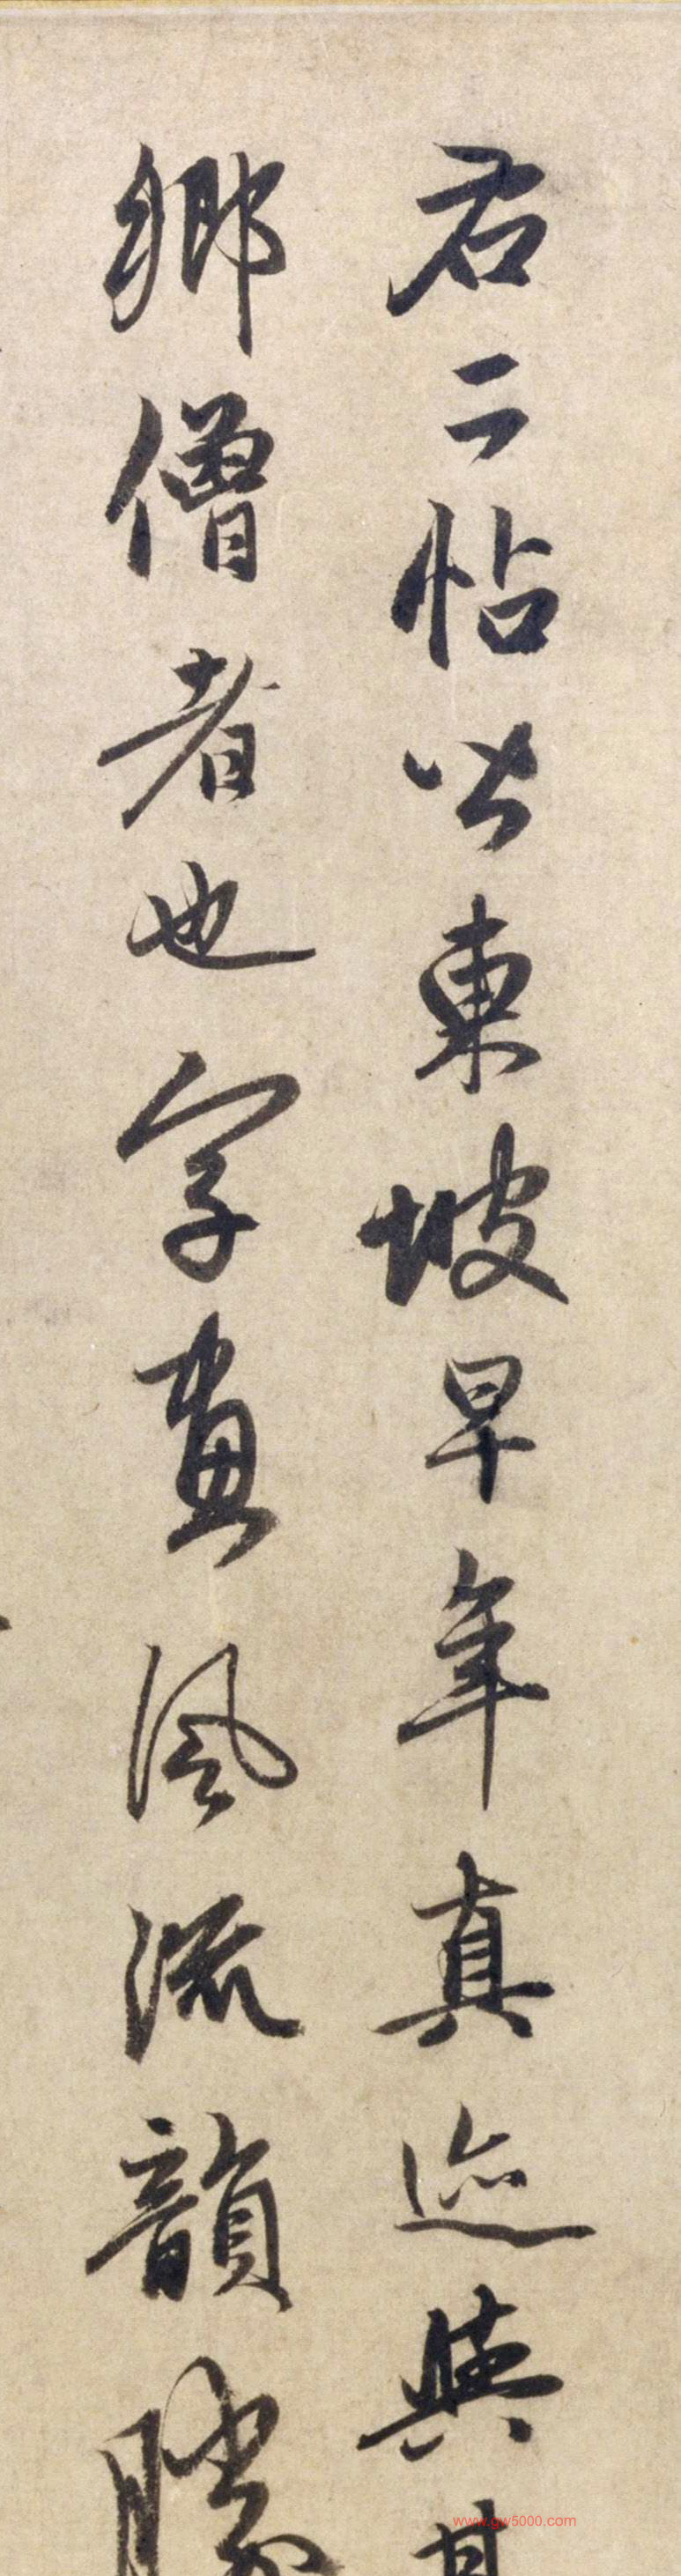 右二帖皆東坡早年真迹與其
鄉僧者也字畫風流韻勝
www.gw5000.com